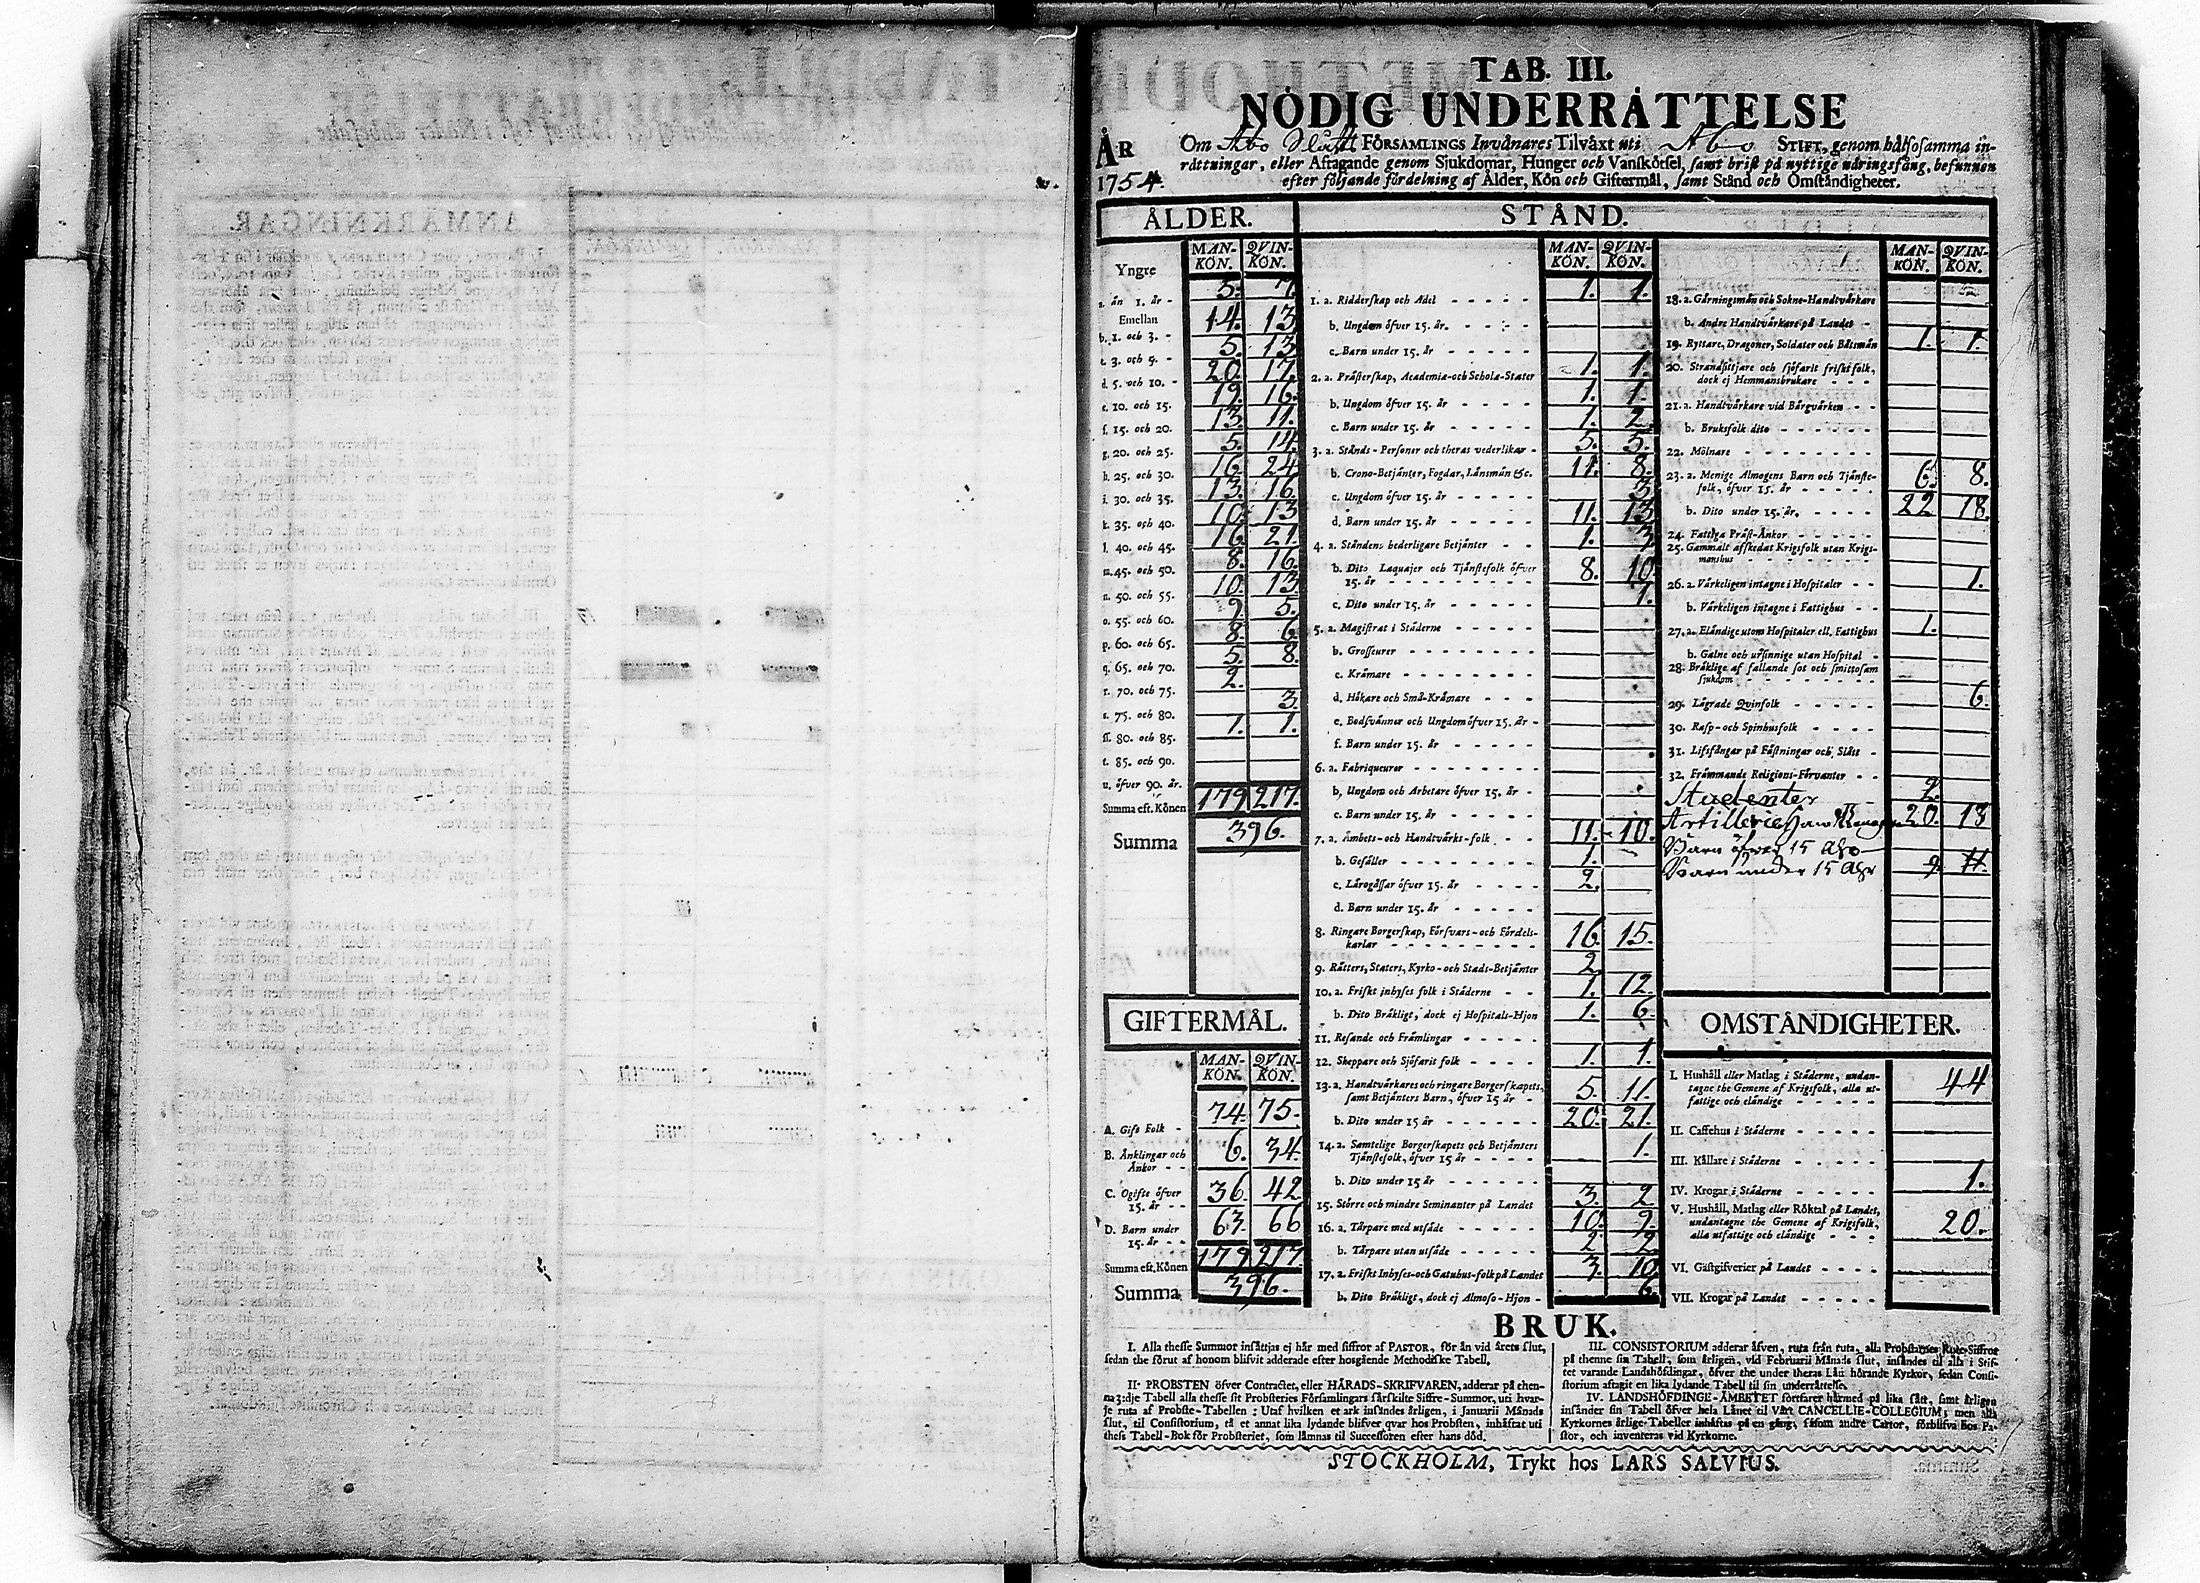 TAB. III.
NÖDIG UNDERRÄTTELSE
ÅR 1754.
Om Åbo Slått FÖRSAMLINGS Invånares Tilvåxt uti Åbo STIFT, genom hålsosamma in-
råttningar, eller Aftagande genom Sjukdomar, Hunger och Vanskötsel, samt brist på nyttige nåringsfång, befunnen
efter följande fördelning af Ålder, Kön och Giftermål, samt Stånd och Omståndigheter.
ÅLDER.
MAN-KÖN. QVIN-KÖN.
Yngre
a. än 1. år - 5. 7.
Emellan
b. 1. och 3. - 14. 13
c. 3. och 5. - 5. 13
d. 5. och 10. - 20. 17.
e. 10. och 15. 19. 16.
f. 15. och 20. 13. 11.
g. 20. och 25. 5. 14.
h. 25. och 30. 16. 24
i. 30. och 35. 13. 16.
k. 35. och 40. 10. 13
l. 40. och 45. 16. 21.
m. 45. och 50. 8. 16.
n. 50. och 55. 10. 13
o. 55. och 60. 9. 5.
p. 60. och 65. 8. 6.
q. 65. och 70. 5. 8.
r. 70. och 75. 2.
s. 75. och 80. 3.
ſſ. 80. och 85. 1. 1.
t. 85. och 90.
u. öfver 90. år.
Summa eft. Könen 179 217.
Summa 396.
GIFTERMÅL.
MAN-KÖN. QVIN-KÖN.
A. Gift Folk - 74. 75.
B. Änklingar och
Änkor - - 6. 34.
C. Ogifte öfver
15. år - - 36. 42
D. Barn under
15. år - - 63. 66
Summa eft. Könen 179 217
Summa 396.
STÅND.
MAN-KÖN. QVIN-KÖN.
1. a. Ridderskap och Adel 1. 1.
b. Ungdom öfver 15. år.
c. Barn under 15. år
2. a. Pråsterskap, Academiæ-och Scholæ-Stater 1. 1.
b. Ungdom öfver 15. år 1. 1.
c. Barn under 15. år 1. 2.
3. a. Stånds-Personer och theras vederlikar - 5. 5.
b. Crono-Betjånter, Fogdar, Lånsmån &c. 11. 8.
c. Ungdom öfver 15. år 3.
d. Barn under 15. år 11. 13
4. a. Ståndens hederligare Betjånter 1. 3
b. Dito Laquajer och Tjånstefolk öfver
15. år 8. 10.
c. Dito under 15. år 1.
5. a. Magistrat i Ståderne
b. Grosseurer
c. Kråmare
d. Hökare och Små-Kråmare
e. Bodsvånner och Ungdom öfver 15. år -
f. Barn under 15. år
6. a. Fabriqueurer
b. Ungdom och Arbetare öfver 15. år -
c. Barn under 15. år
7. a. Åmbets-och Handtvårks-folk 11. 10.
b. Gesåller 1.
c. Lårogåssar öfver 15. år 2.
d. Barn under 15. år
8. Ringare Borgerskap, Försvars-och Fördels-
karlar 16. 15.
9. Råtters, Staters, Kyrko-och Stads-Betjånter 2
10. a. Friskt inhyses folk i Ståderne 1. 12.
b. Dito Bråkligt, dock ej Hospitals-Hjon 1. 6.
11. Resande och Fråmlingar
12. Skeppare och Sjöfarit folk 1. 1.
13. a. Handtvårkares och ringare Borgerskapets,
samt Betjånters Barn, öfver 15 år 5. 11.
b. Dito under 15 år 20. 21.
14. a. Samtelige Borgerskapets och Betjånters
Tjånstefolk, öfver 15 år 1.
b. Dito under 15 år
15. Större och mindre Seminanter på Landet 3. 2.
16. a. Tårpare med utsåde 10. 9.
b. Tårpare utan utsåde 2 2
17. a. Friskt Inhyses-och Gatuhus-folk på Landet 3. 10
b. Dito Bråkligt, dock ej Almoso-Hjon - 6.
MAN-KÖN. QVIN-KÖN.
18. a. Gårningsmån och Sokne-Handtvårkare
b. Andre Handtvårkare på Landet -
19. Ryttare, Dragoner, Soldater och Båtsmån 1. 1.
20. Strandsittjare och sjöfarit friskt folk,
dock ej Hemmansbrukare
21. a. Handtvårkare vid Bårgvårken
b. Bruksfolk dito
22. Mölnare
23. a. Menige Almogens Barn och Tjånste-
folk, öfver 15. år 6. 8.
b. Dito under 15. år. 22 18.
24. Fattiga Pråst-Ånkor
25. Gammalt affkedat Krigsfolk utan Krigs-
manshus
26. a. Vårkeligen intagne i Hospitaler 1.
b. Vårkeligen intagne i Fattighus
27. a. Elåndige utom Hospitaler ell. Fattighus 1.
b. Galne och ursinnige utan Hospital -
28. Bråklige af fallande sot och smittosam
sjukdom
29. Lågrade Qvinfolk 6.
30. Rasp-och Spinhusfolk
31. Lifsfångar på Fåstningar och Slått
32. Fråmmande Religions-Förvanter
Studenter 2.
Artillerie 20. 18
Barn öfver 15 åhr
Barn under 15 åhr 9. 11.
OMSTÅNDIGHETER.
I. Hushåll eller Matlag i Ståderne, undan-
tagne the Gemene af Krigsfolk, alla ut-
fattige och elåndige 44
II. Caffehus i Ståderne
III. Kållare i Ståderne
IV. Krogar i Ståderne 1.
V. Hushåll, Matlag eller Röktal på Landet,
undantagne the Gemene af Krigsfolk,
alla utfattige och elåndige 20.
VI. Gåstgifverier på Landet
VII. Krogar på Landet
BRUK.
I. Alla thesse Summor insåttjas ej hår med siffror af PASTOR, för ån vid årets slut,
sedan the förut af honom blifvit adderade efter hosgående Methodiske Tabell.
II. PROBSTEN öfver Contractet, eller HÅRADS-SKRIFVAREN, adderar på then-
na 3:dje Tabell alla thesse sit Probsteries Församlingars sårskilte Siffre-Summor, uti hvar-
je ruta af Probste-Tabellen: Utaf hvilken et ark insåndes årligen, i Januarii Månads
slut, til Consistorium, tå et annat lika lydande blifver qvar hos Probsten, inhåftat uti
thess Tabell-Bok för Probsteriet, som låmnas til Successoren efter hans död.
III. CONSISTORIUM adderar åfven, ruta från ruta, alla Probstarnes Rute-Siffror
på thenne sin Tabell, som årligen, vid Februarii Månads slut, insåndes til alla i Stif-
tet varande Landshöfdingar, öfver the under theras Lån hörande Kyrkor, sedan Consi-
storium aftagit en lika lydande Tabell til sin underråttelse.
IV. LANDSHÖFDINGE-ÅMBETET fortfarer hårmed på lika sått, samt årligen
insånder sin Tabell öfver hela Lånet til Vårt CANCELLIE-COLLEGIUM; men alla
Kyrkornes årlige Tabeller inhåftas på en gång, såsom andre Cartor, förblifva hos Pa-
stor, och inventeras vid Kyrkorne.
STOCKHOLM, Trykt hos LARS SALVIUS.